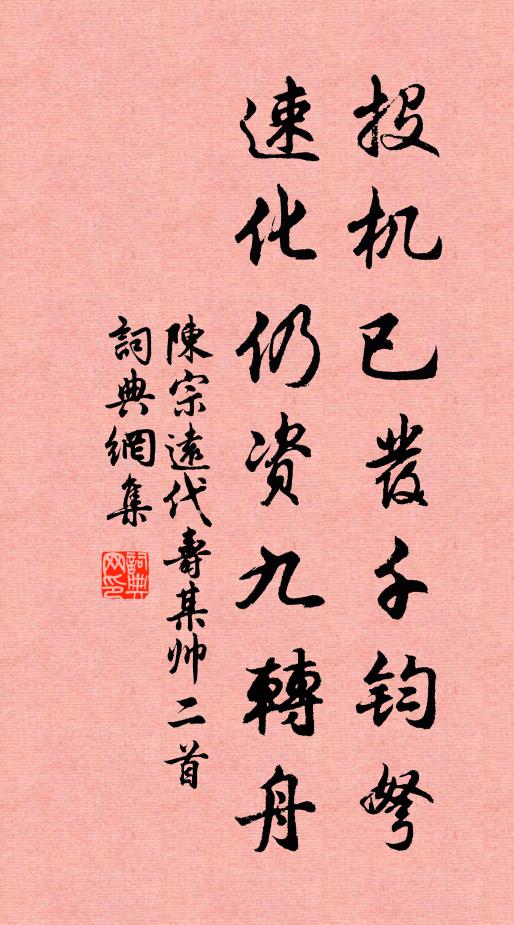 投机已發千鈞弩
速化仍资九轉舟
陳宗遠代壽某帅二首
詞典網集
詞典网印